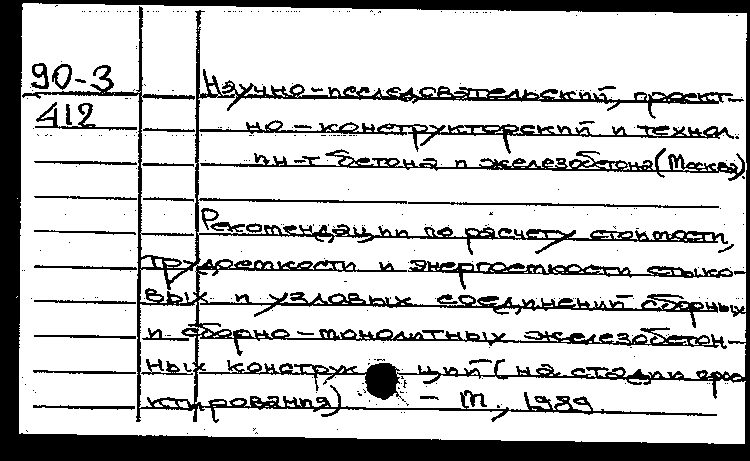 90-3
412
Научно-исследовательский, проект-
но-конструкторский и технол.
ин-т бетона и железобетона (Москва).
Рекомендации по расчету стоимости,
трудоемкости и энергоемкости стыко-
вых и угловых соединений сборных
и сборно-монолитных железобетон-
ных конструкций (на стадии прое
ктирования) - М., 1989.